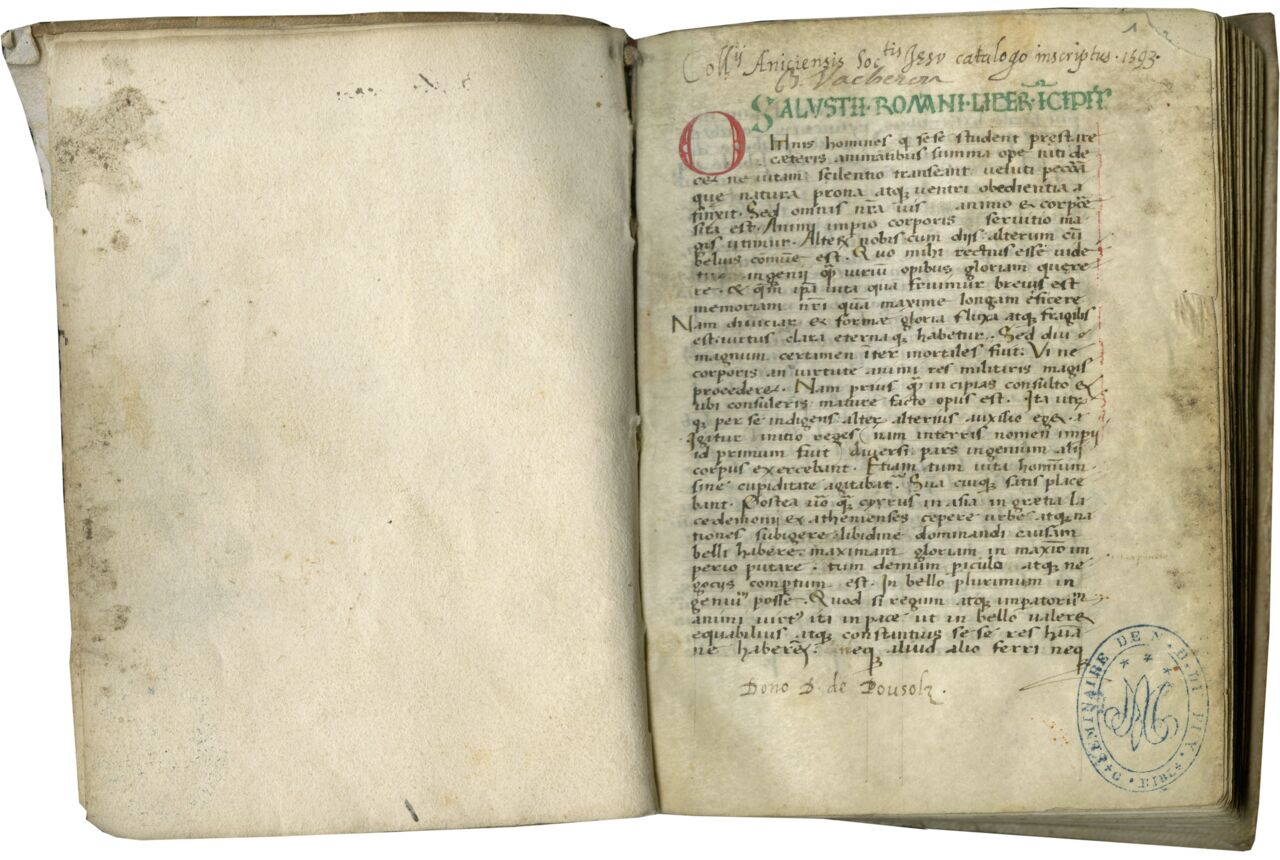 Collij Aniciensis Soctis Jesu catalogo inscriptus · 1593 ·
G. Vacheron
SALVSTII · ROMANI · LIBER · ICIPIT
OMnis homines q sese student prestare
cæteris animatibus summa ope niti de
cet ne vitam scilentio transeant veluti peccora
que natura prona atq ventri obedientia a
finxit · Sed omnis nra vis animo & corpore
sita est · Animi impio corporis servitio ma
gis utimur · Altex nobis cum dijs alterum cu
beluis comune est · Quo mihi rectius esse vide
tur ingenii qm viriu opibus gloriam quere
re · & qm ipa vita qua fruimur brevis est
memoriam nri qua maxime longam eficere
Nam diviciar & formæ gloria fluxa atq fragilis
est · virtus clara eternaq habetur · Sed diu
magnum certamen iter mortales fuit · Vi ne
corporis an virtute animi res militaris magis
procedere · Nam prius q incipias consulto &
ubi consuleris mature facto opus est · Ita utr
q per se indigens alter alterius auxilio eget
Igitur initio reges ( nam interris nomen impii
id primum fuit ) diversi pars ingenium alii
corpus exercebant · Etiam tum vita hominum
sine cupiditate agitabat · Sua cuiq satis place
bant · Postea uo q cyrus in asia in grætia la
cedemonii & athenienses cepere urbe atq na
tiones subigere libidine dominandi causam
belli habere maximam gloriam in maxio im
perio putare · tum demum piculo atq ne
gociis comptum est · In bello plurimum in
geniu posse · Quod si regum atq impatorum
animi virt iti in pace ut in bello valeret
equabilius atq constantius se se res huma
ne haberet · neq aliud alio ferri neq
Dono D. de Pousolz ·
SEMINAIRE DE N. D. DU PUY
BIBL